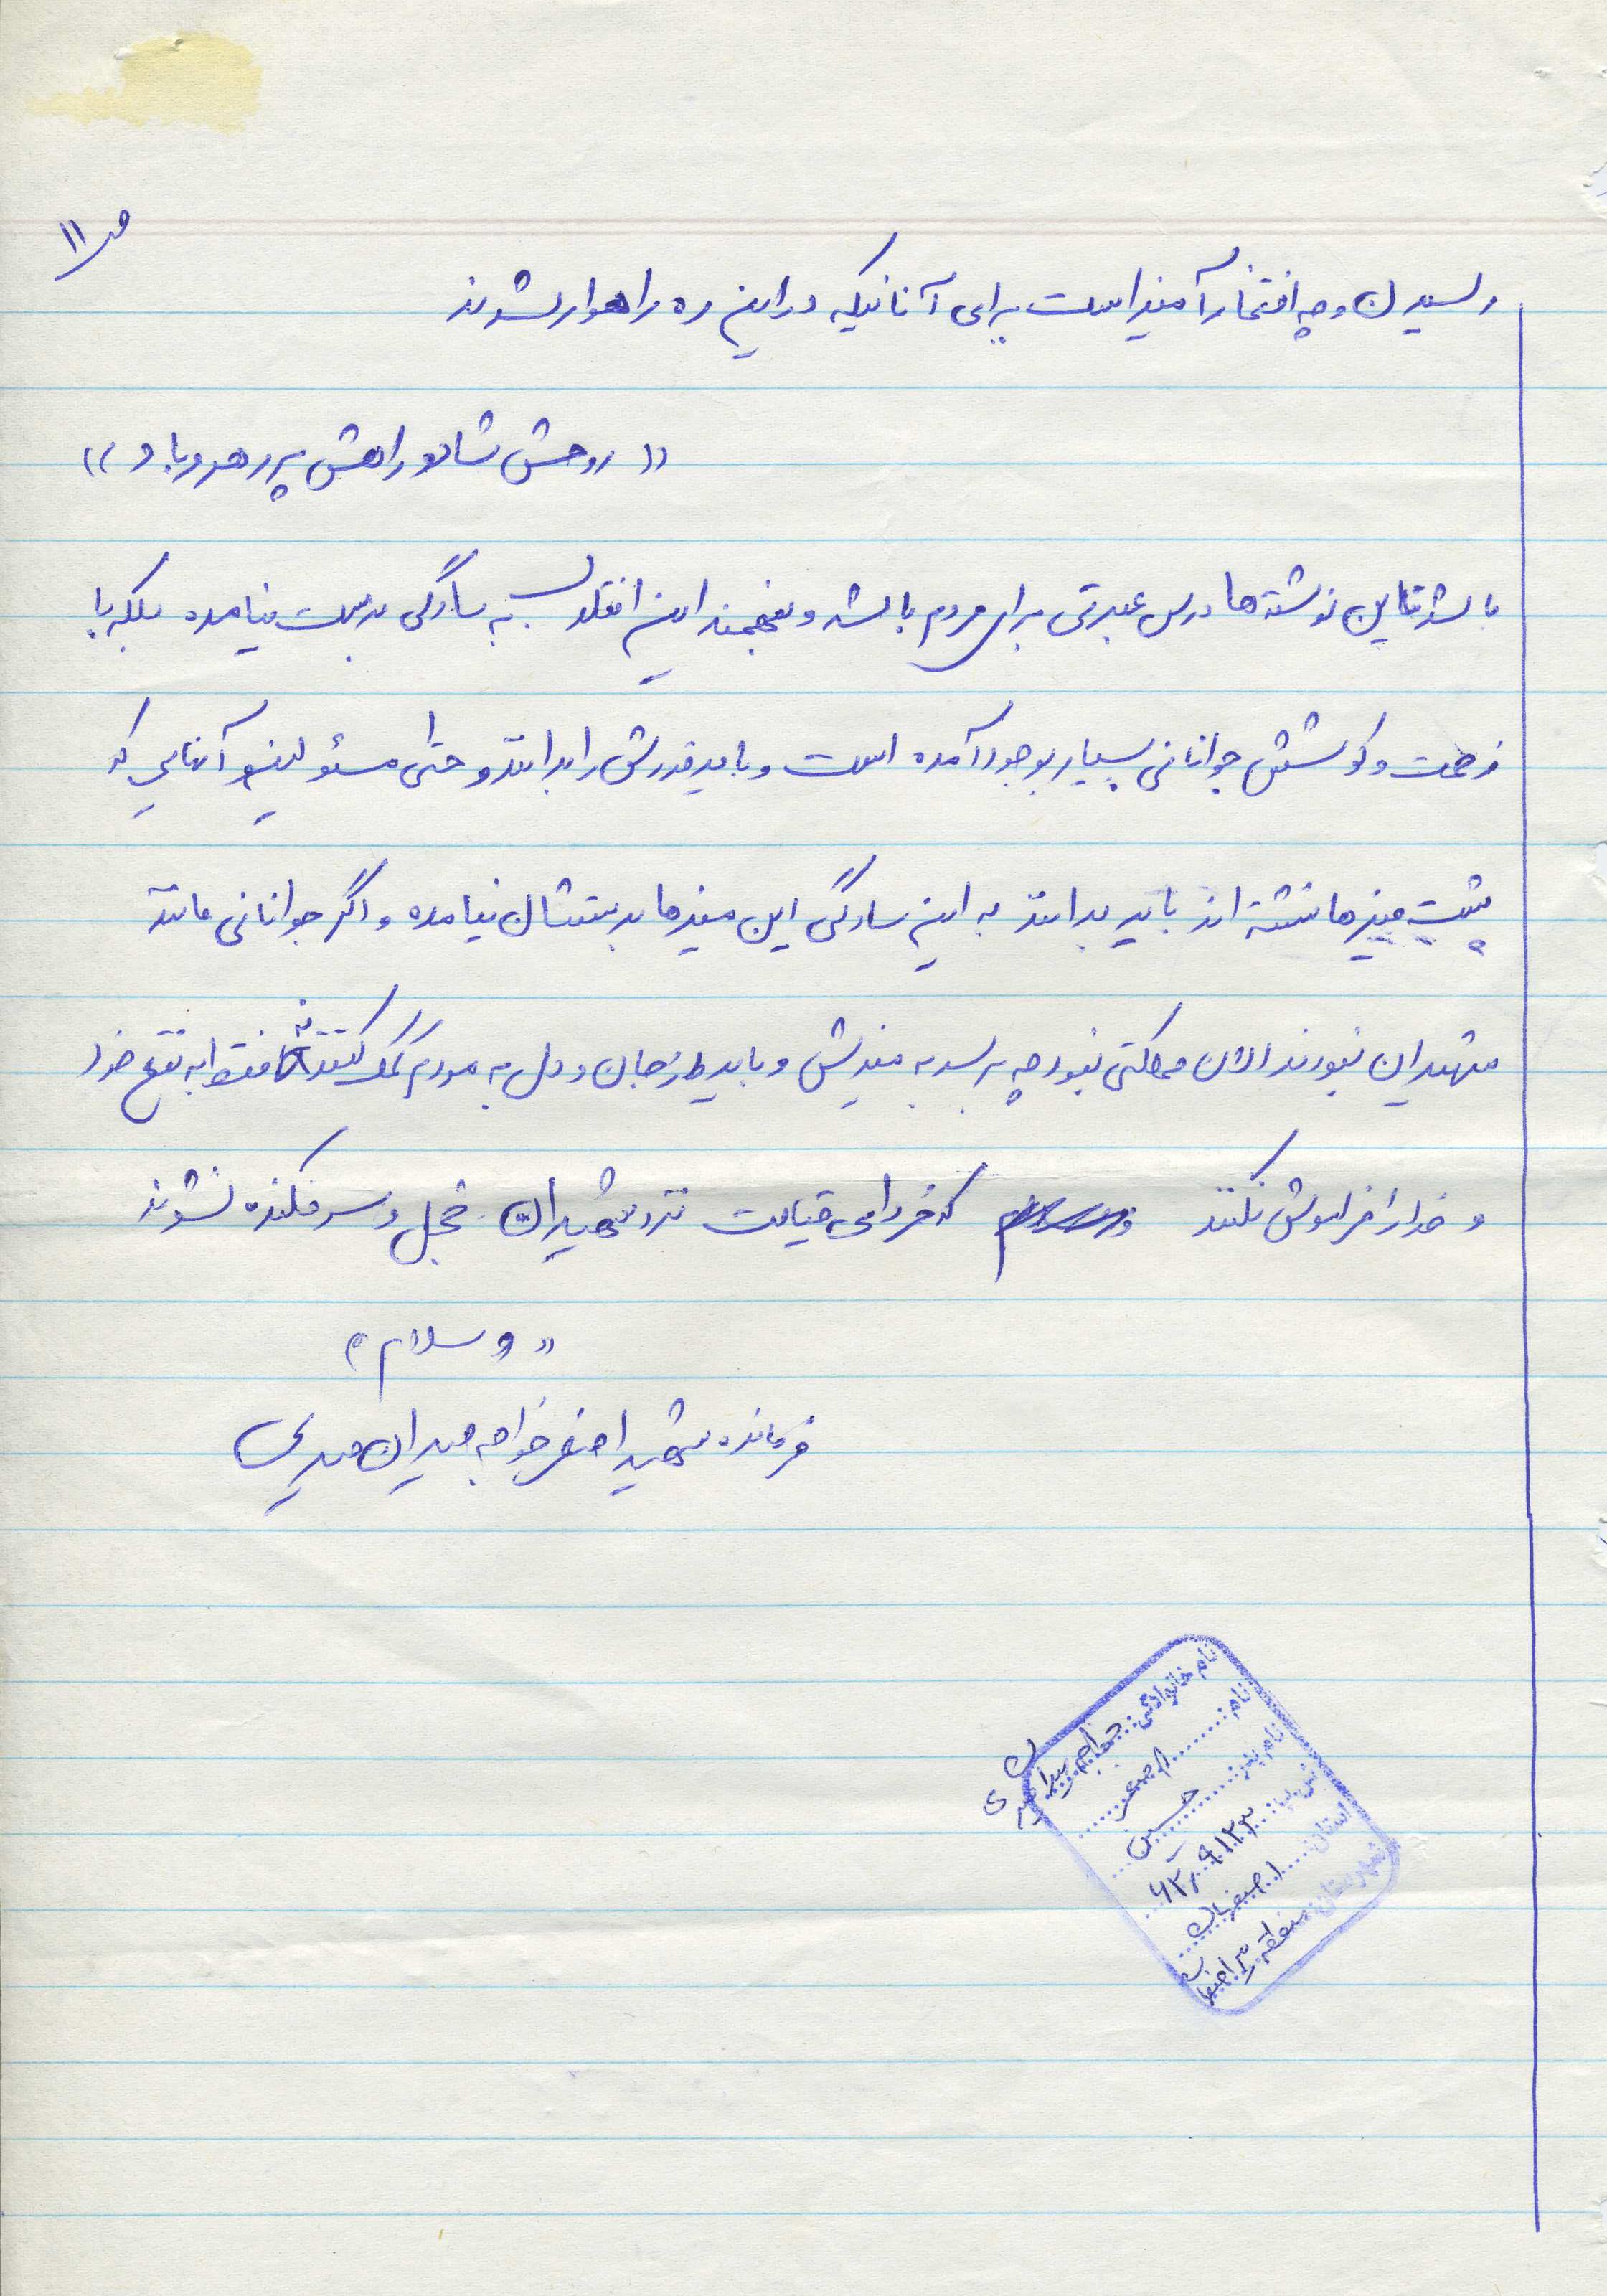 ص ۱۱
رسیدن و چه افتخارآمیز است برای آنانیکه در این ره راهوار شوند
(( روحش شاد و راهش پر رهرو باد ))
باشد تا این نوشته ها درس عبرتی برای مردم باشد و بفهمند این انقلاب به سادگی بدست نیامده بلکه با
زحمت و کوشش جوانانی بسیار بوجود آمده است و باید قدرش را بدانند و حتی مسئولین و آنهایی که
پشت میزها نشسته اند باید بدانند به این سادگی این میزها بدستشان نیامده و اگر جوانانی مانند
شهیدان نبودند الان مملکتی نبود چه برسد به میزش و باید از جان و دل به مردم کمک کنند نه فقط به نفع خود
و خدا را فراموش نکنند که فردای قیامت نزد شهیدان خجل و سرفکنده نشوند
« و سلام »
فرمانده شهید اصغر خواجه میران میری
نام خانوادگی: خواجه میران میری
نام: اصغر
نام پدر: حسین
ش پ: ۶۲۰۹۱۲۳
استان: اصفهان
شهرستان: منطقه ۳ اصفهان